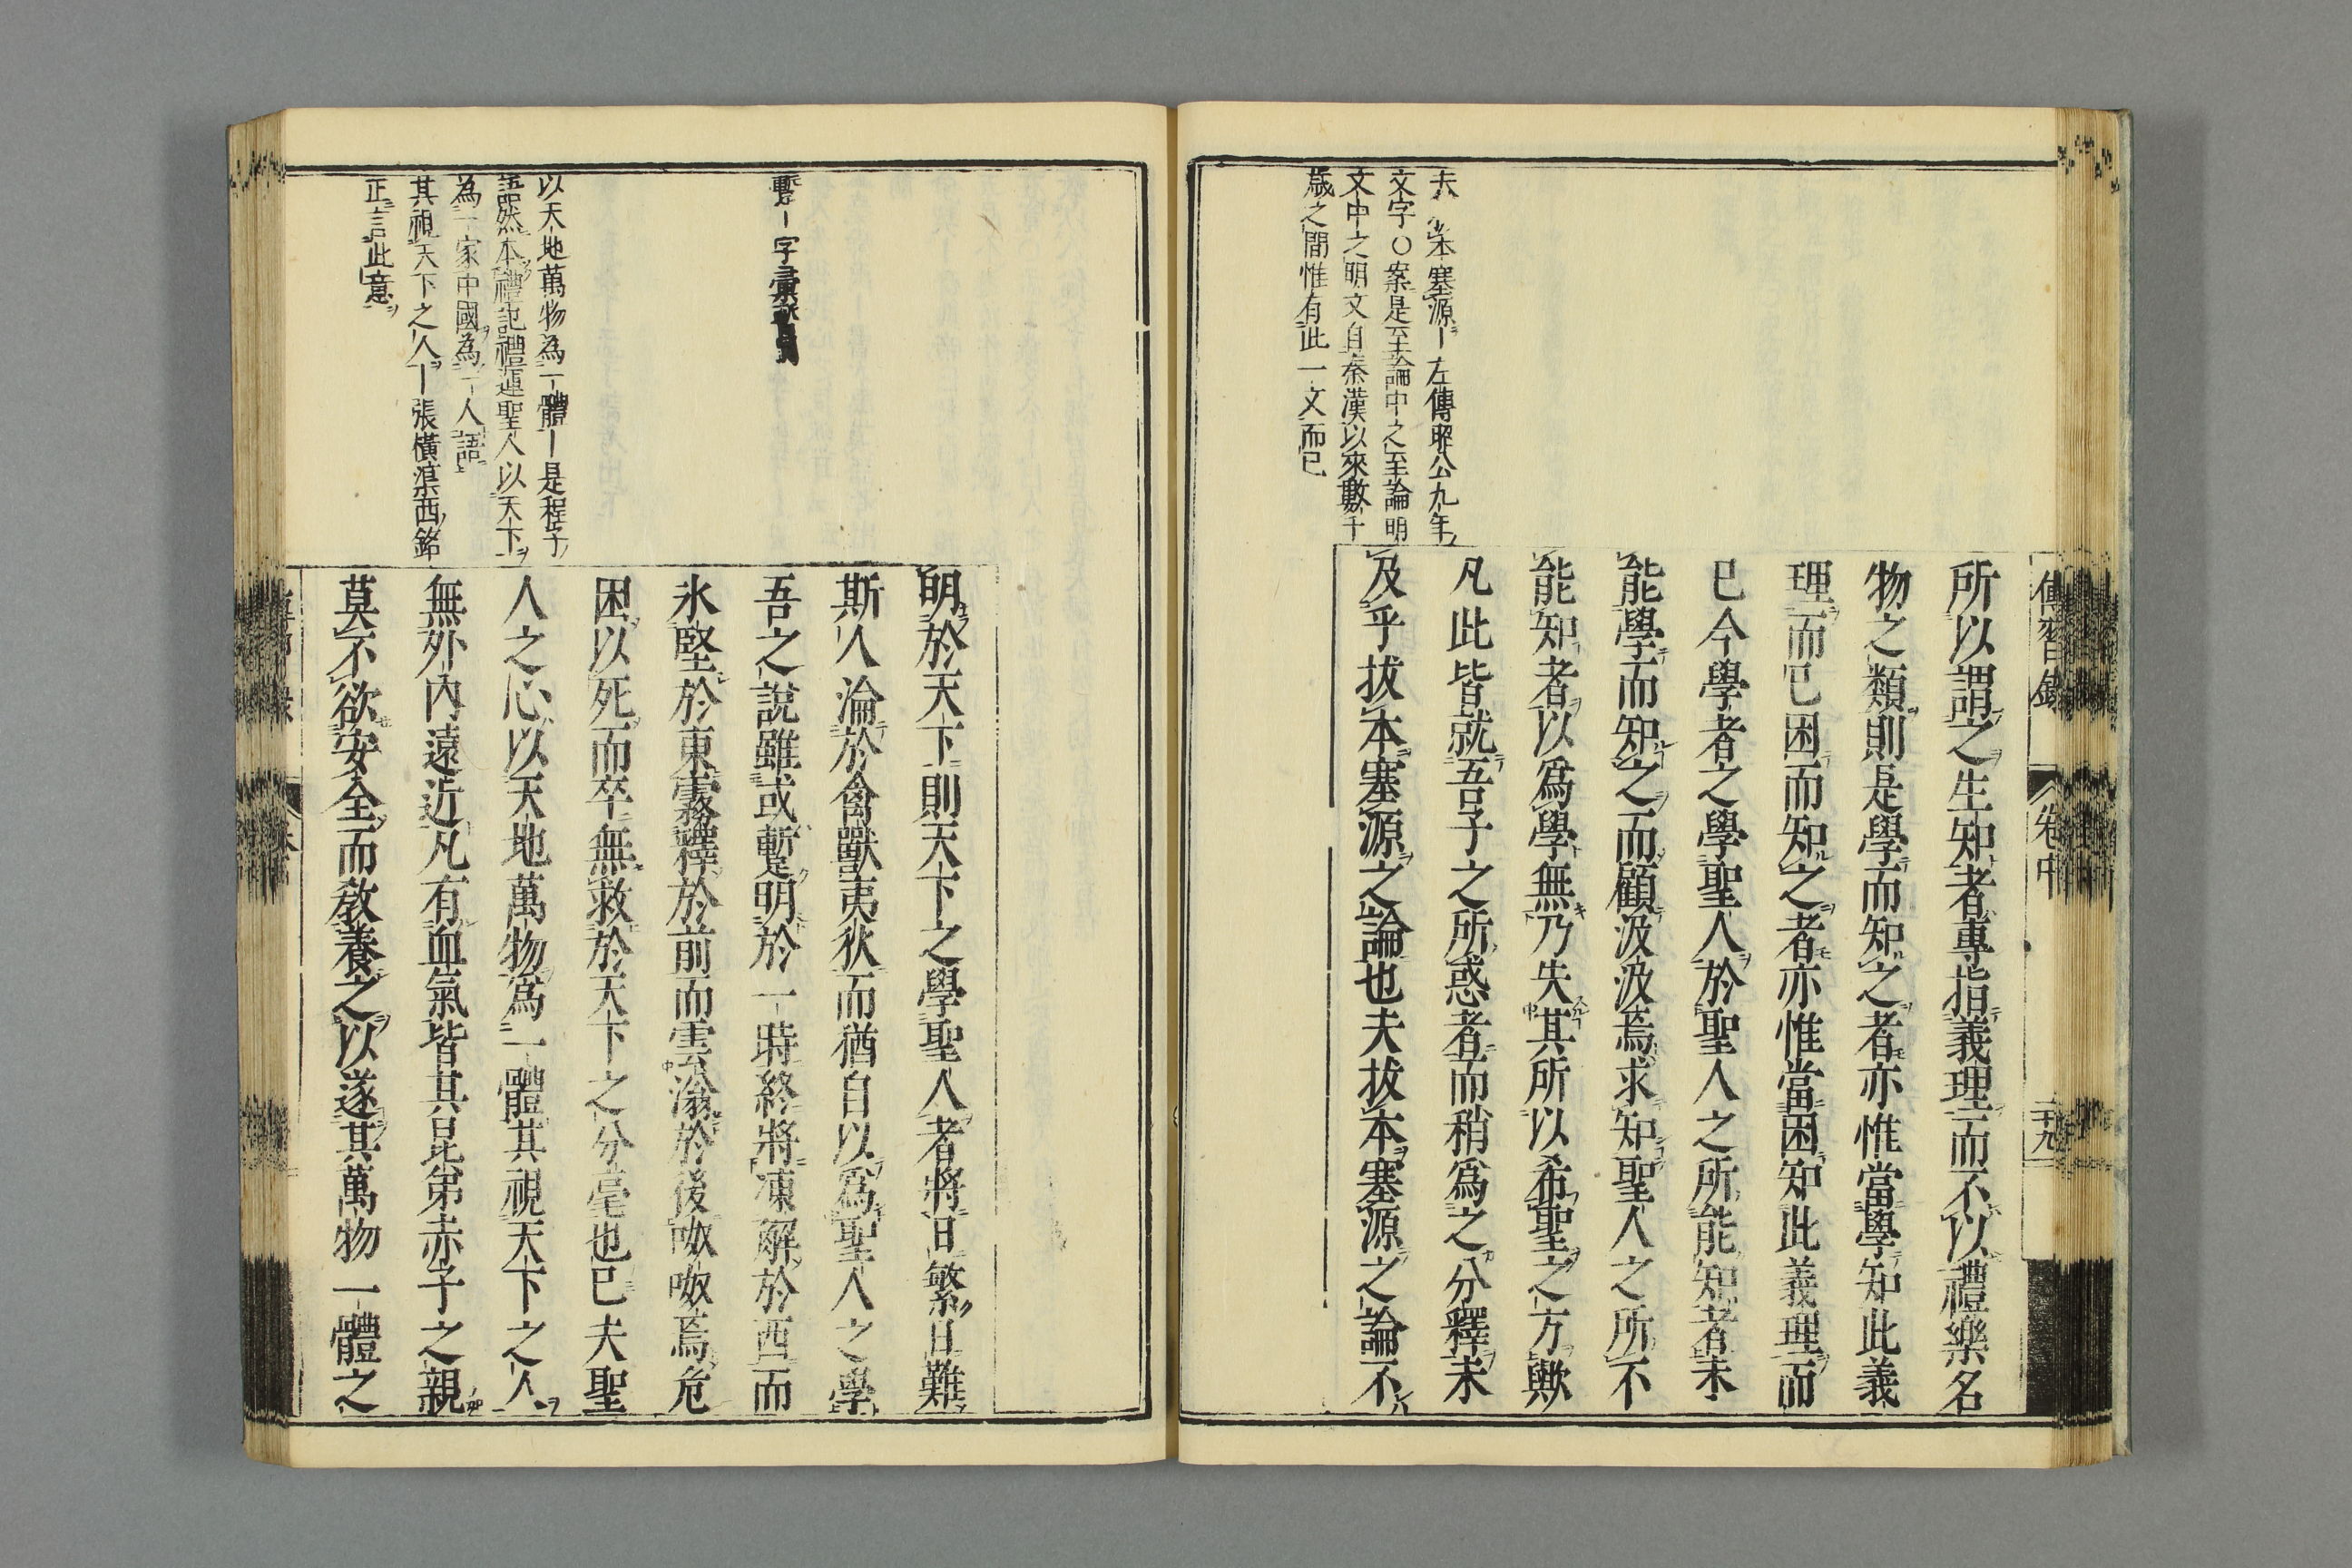 傳習錄 卷中 二十九
所以謂之生知者專指義理而不以禮樂名
物之類則是學而知之者亦惟當學知此義
理而已困而知之者亦惟當困知此義理而
已今學者之學聖人於聖人之所能知者未
能學而知之而顧汲汲焉求知聖人之所不
能知者以爲學無乃失其所以希聖之方歟
凡此皆就吾子之所惑者而稍爲之分釋未
及乎拔本塞源之論也夫拔本塞源之論不
夫 本塞源〡左傳昭公九年
文字○案是至論中之至論明
文中之明文自秦漢以來數千
歲之間惟有此一文而已
明於天下則天下之學聖人者將日繁日難
斯人淪於禽獸夷狄而猶自以爲聖人之學
吾之說雖或蹔明於一時終將凍解於西而
氷堅於東霧釋於前而雲滃於後呶呶焉危
困以死而卒無救於天下之分毫也已夫聖
人之心以天地萬物爲一體其視天下之人
無外內遠近凡有血氣皆其昆弟赤子之親
莫不欲安全而敎養之以遂其萬物一體之
蹔〡字彙
以天地萬物為一體〡是程子
語然本禮記禮運聖人以天下
為一家中國為一人語
其視天下之人〡張橫渠西銘
正言此意